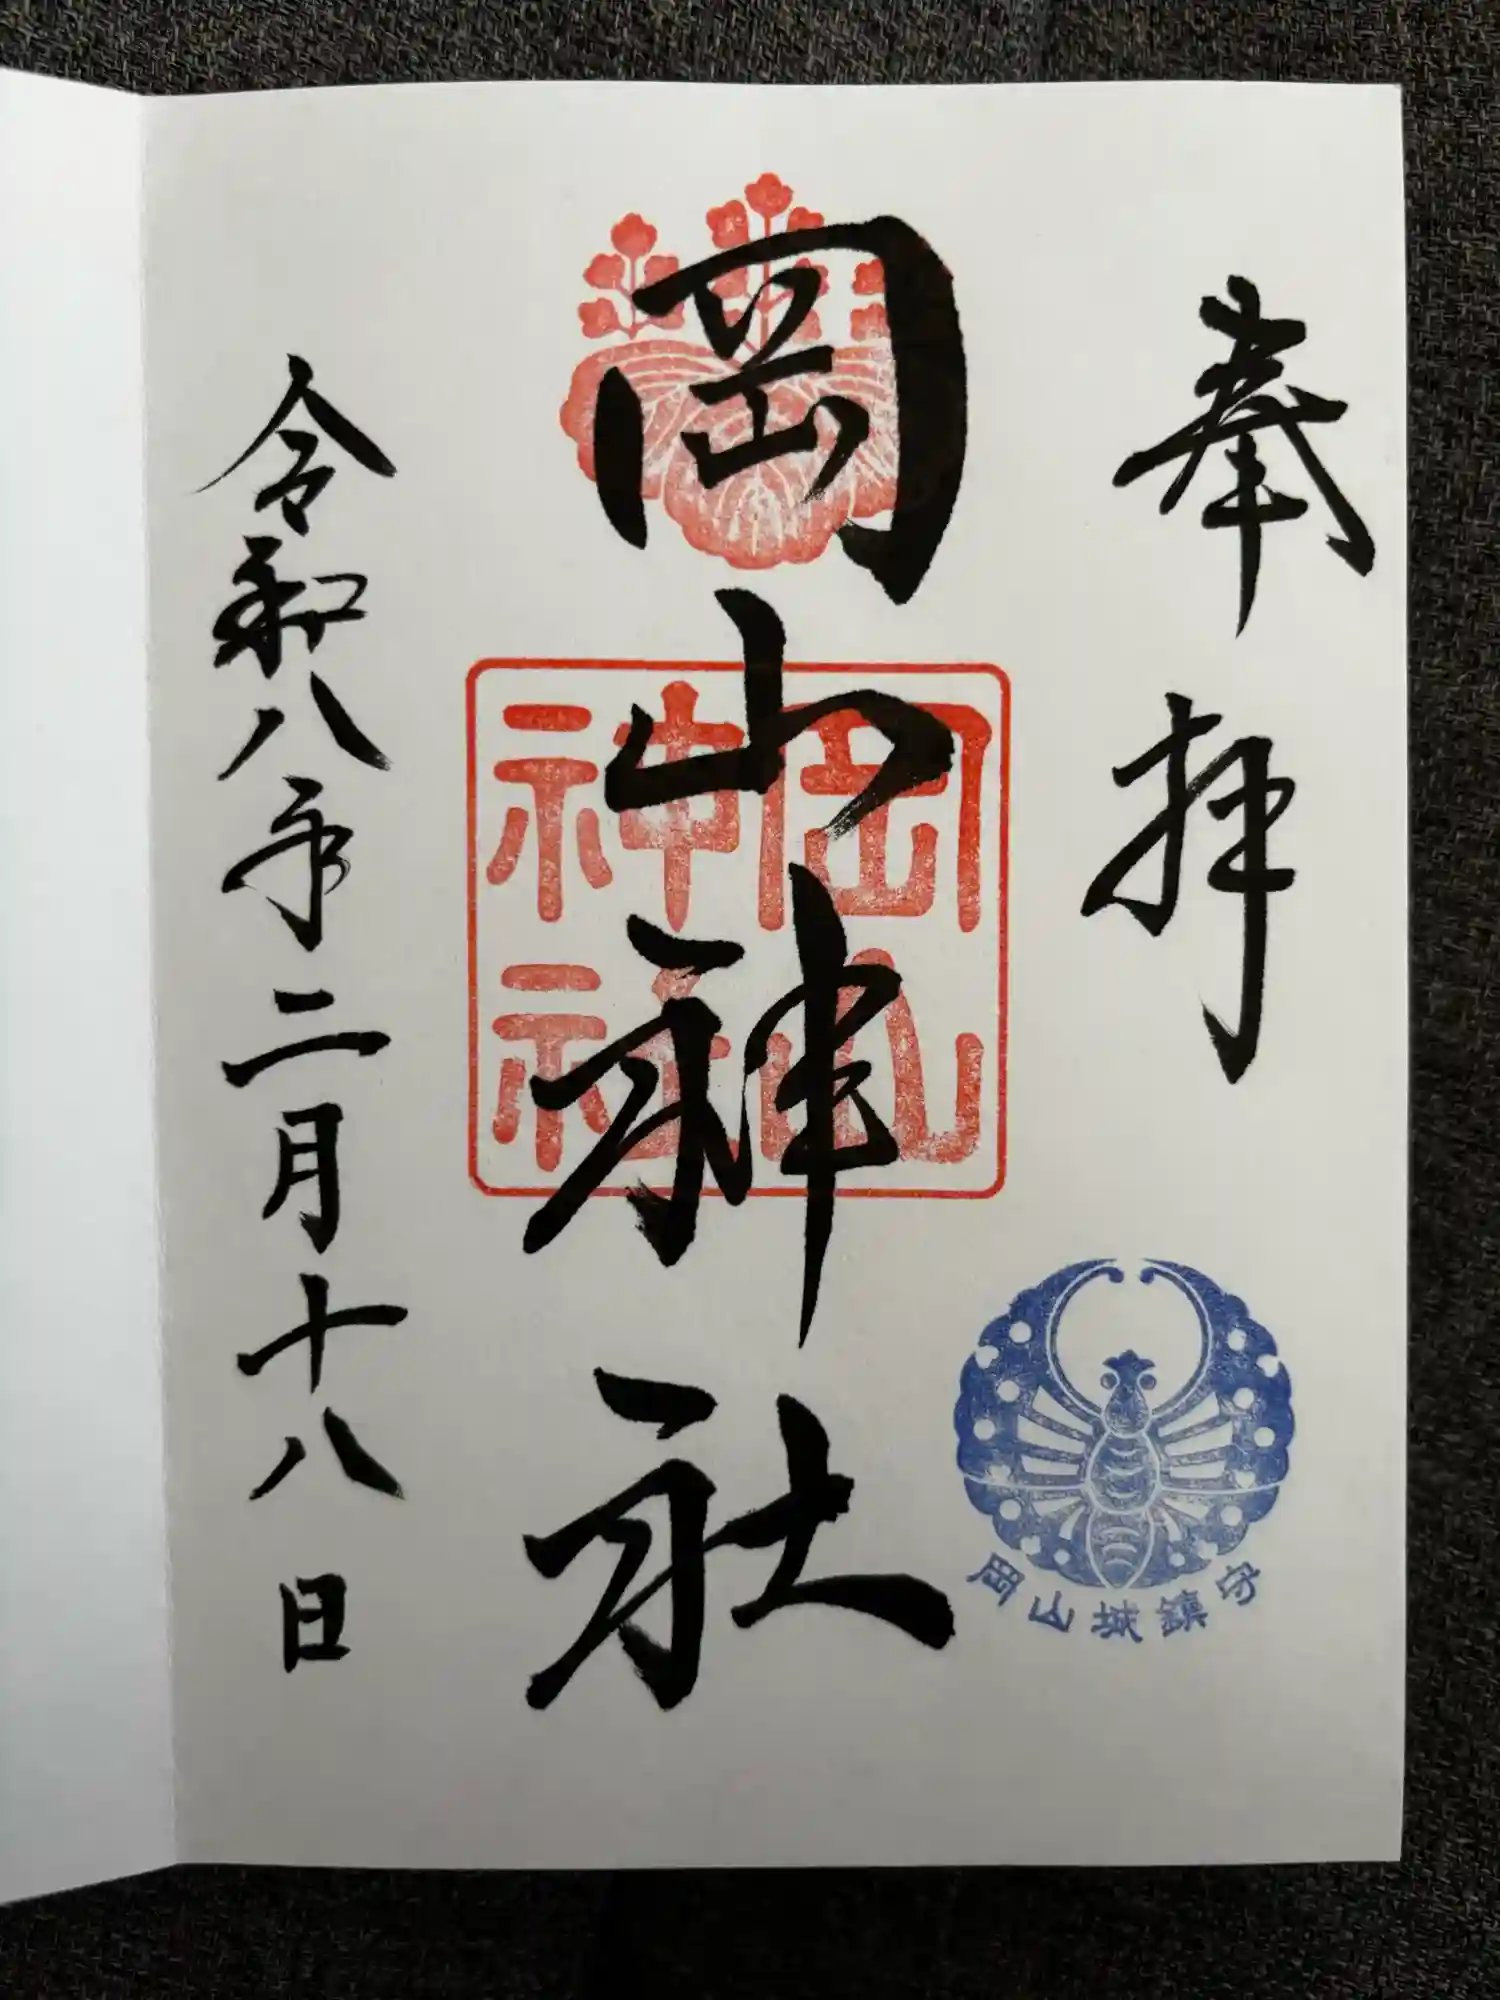 奉拝
岡山神社
岡山
神社
岡山城鎮守
令和八年二月十八日